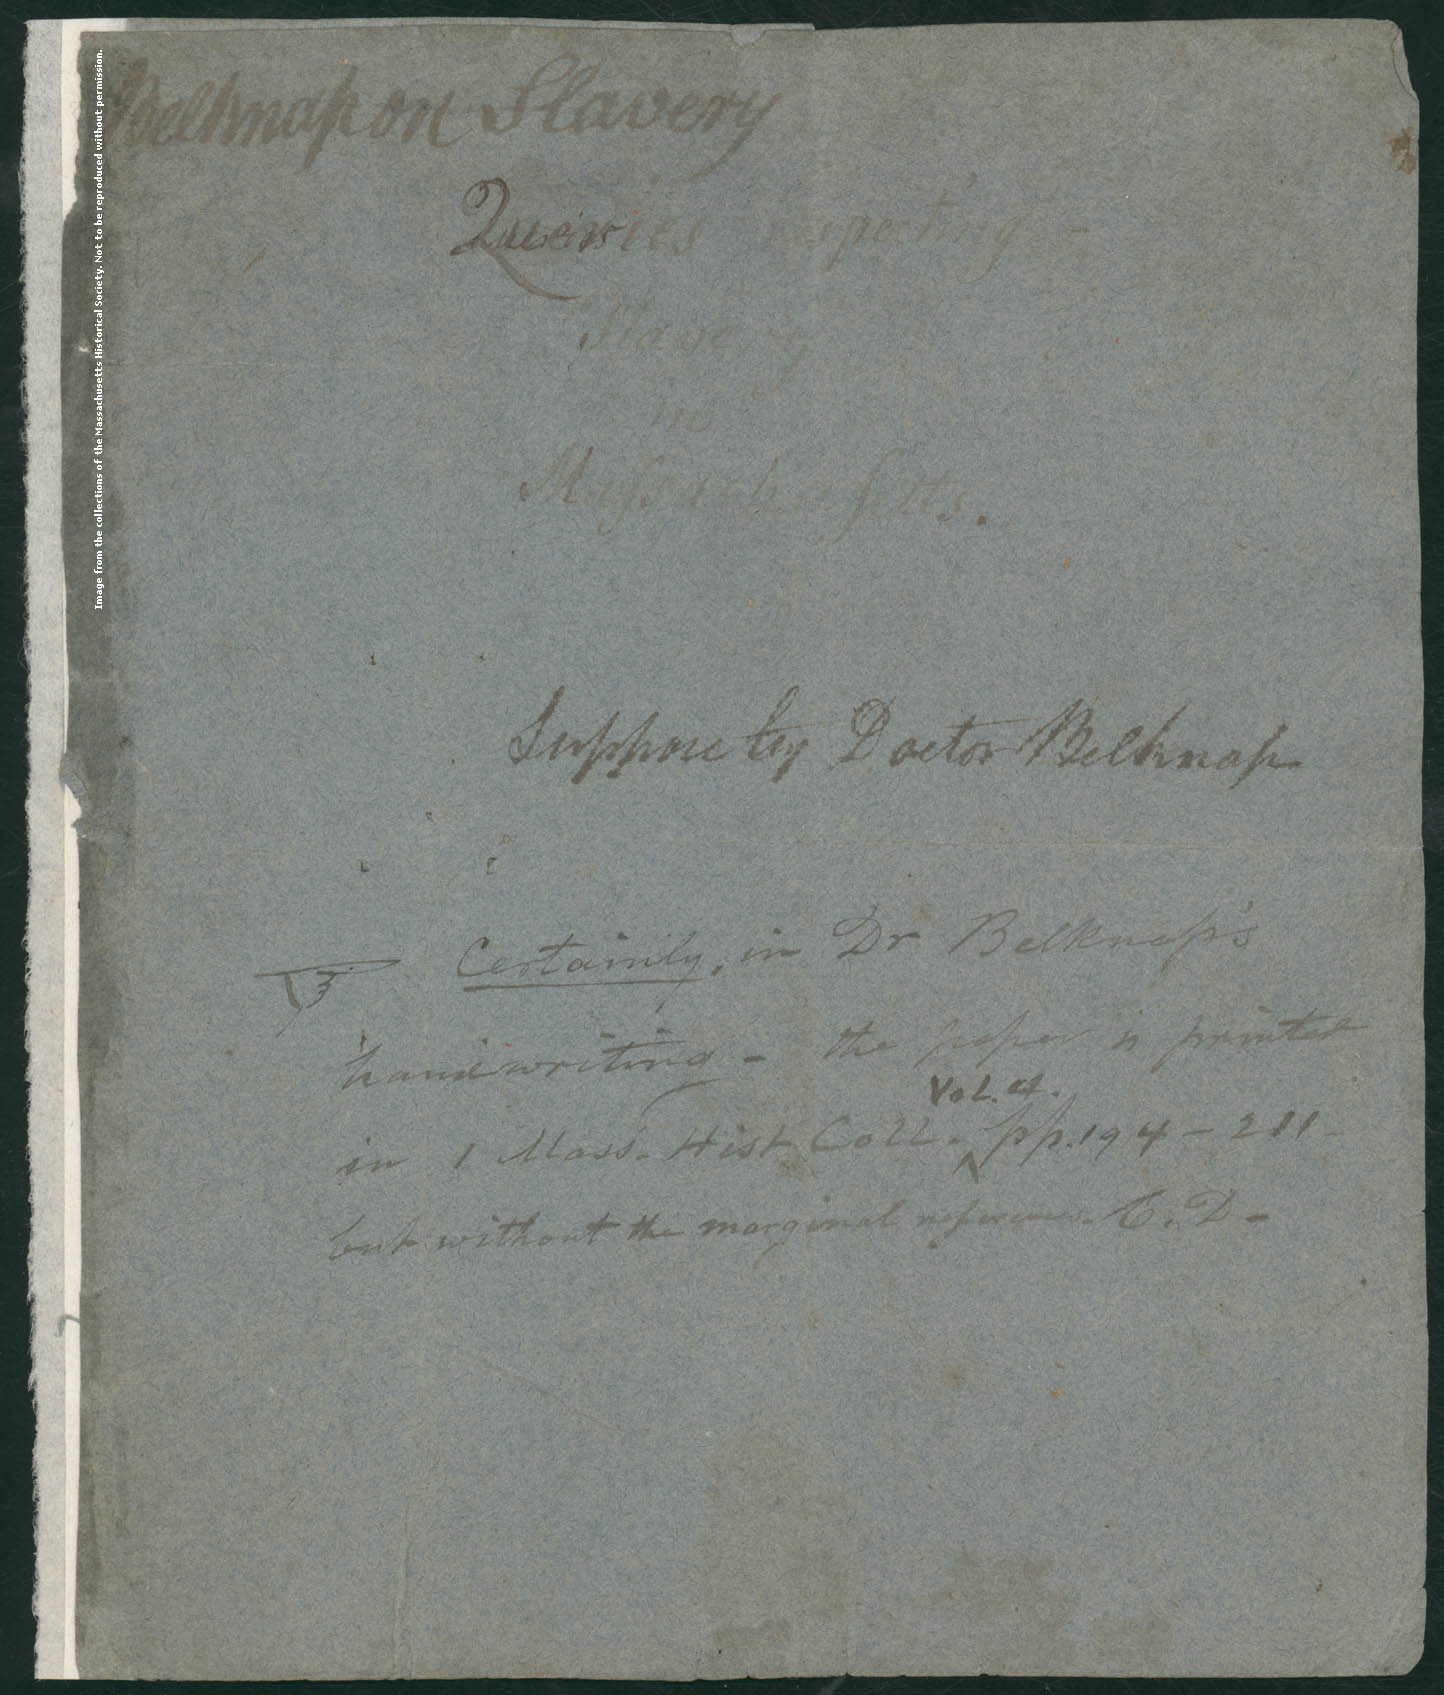 Belknap on Slavery
Queries respecting
Slavery
in
Massachusetts.
Suppose by Doctor Belknap
☞ Certainly, in Dr Belknap's
handwriting - the paper is printed
Vol. 4.
in 1 Mass. Hist Coll. ^ pp. 194 - 211 -
but without the marginal references. C. D -
Image from the collections of the Massachusetts Historical Society. Not to be reproduced without permission.